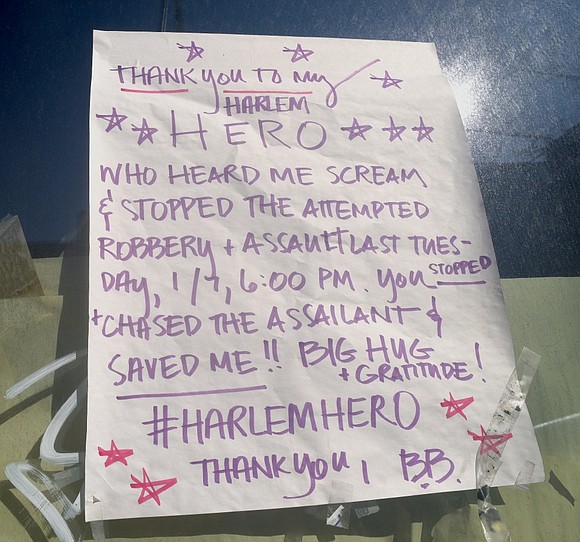 THANK you TO my
HARLEM
HERO
WHO HEARD ME SCREAM
& STOPPED THE ATTEMPTED
ROBBERY + ASSAULT LAST TUES-
DAY, 1/7, 6:00 PM. you STOPPED
+ CHASED THE ASSAILANT &
SAVED ME!! BIG HUG
+ GRATITUDE!
#HARLEMHERO
THANK you, B.B.